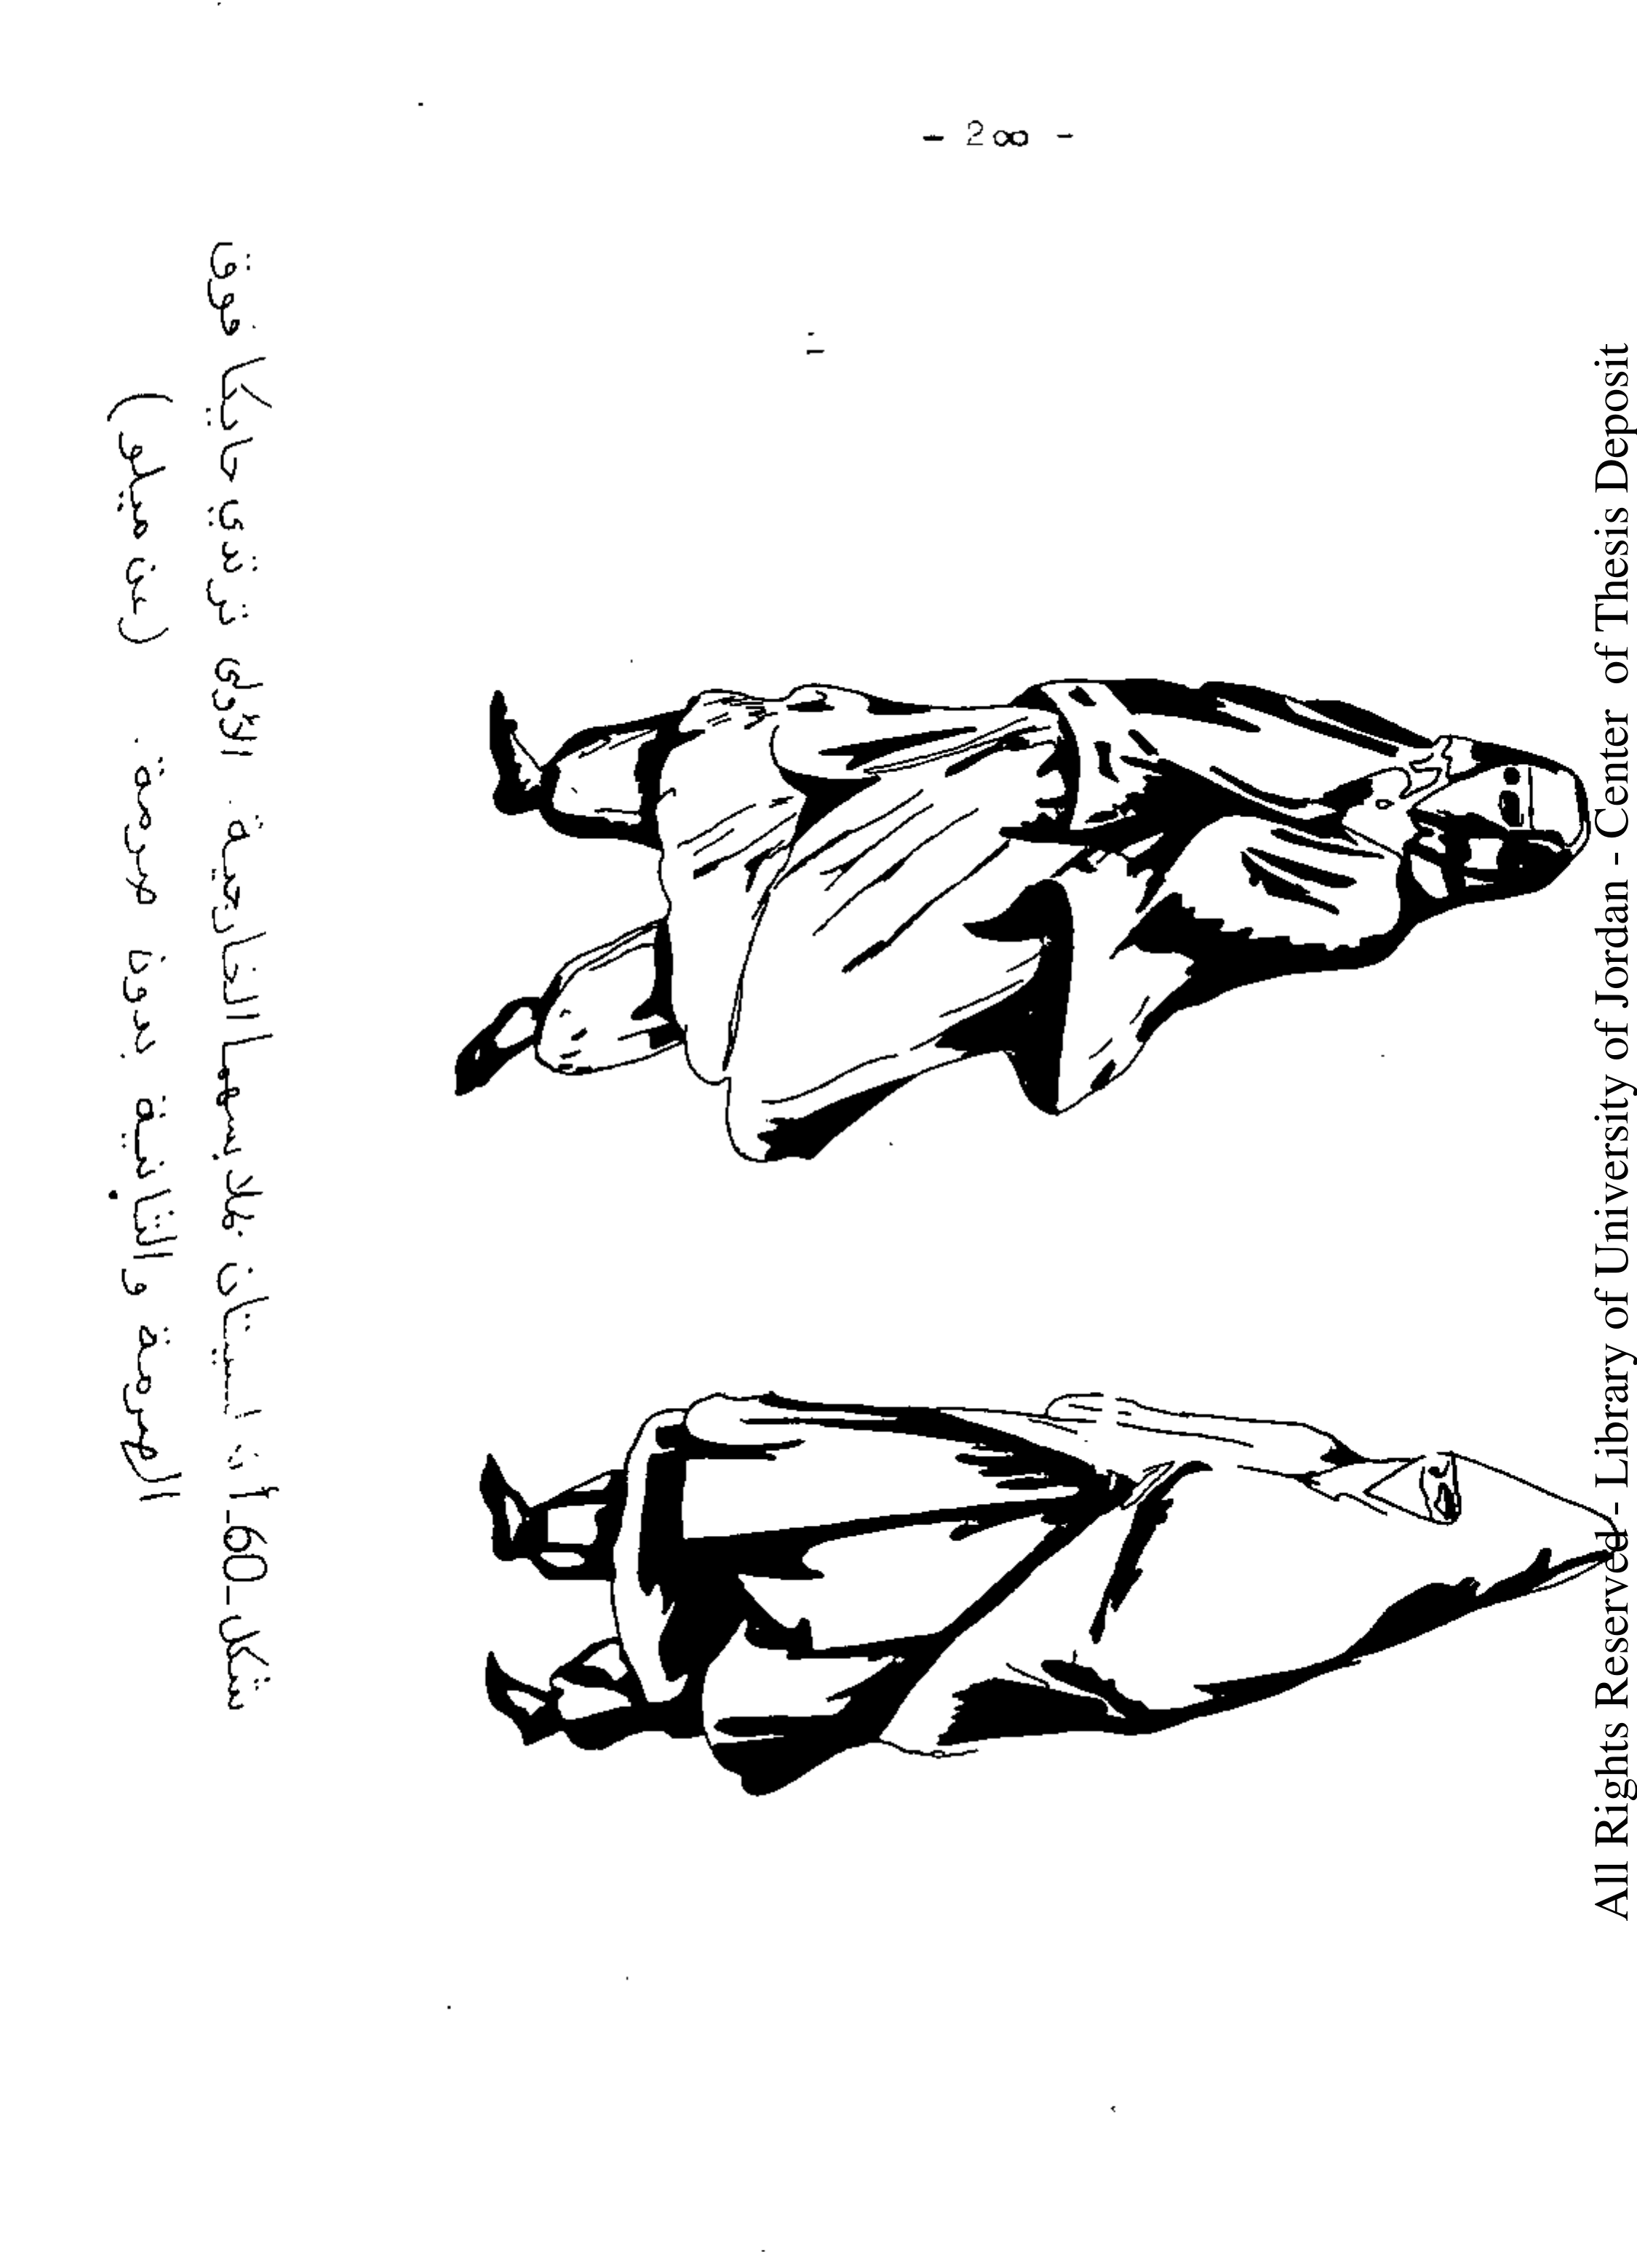 - 2∞ -
شكل-60- أ، ب- سيدتان بملابسهما الخارجية. الأولى ترتدي حايكا فوق
العرصة والثانية بدون عرصة. (عن ميلو)
All Rights Reserved - Library of University of Jordan - Center of Thesis Deposit